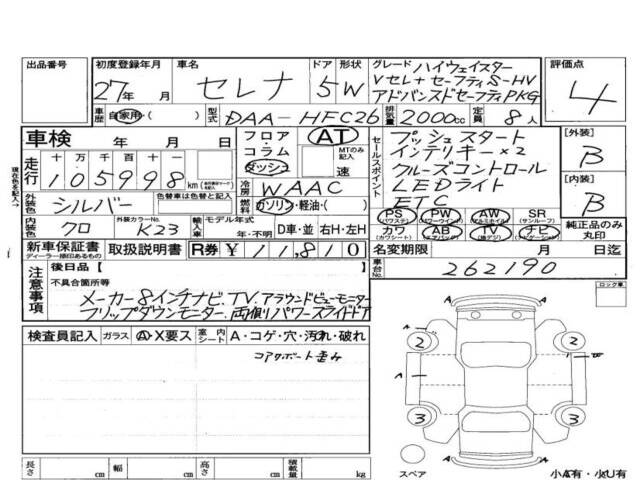 出品番号
初度登録年月
27年 月
車名
セレナ
ドア 形状
5W
グレード ハイウェイスター
Vセレ+セーフティS-HV
アドバンスドセーフティPKG
評価点
4
車歴 自家用・( )
型式 DAA-HFC26
排気量 2000cc
定員 8人
車検 年 月 日
フロア
コラム
ダッシュ
AT
MTのみ記入
速
セールスポイント
プッシュスタート
インテリキー×2
クルーズコントロール
LEDライト
ETC
[外装]
B
[内装]
B
走行 十 万 千 百 十 一
105998 km
冷房 WAAC
燃料 ガソリン・軽油・( )
現在色を記入→
外装色 シルバー
色替車は色替と記入
内装色 クロ
外装カラーNo. K23
輸入車 モデル年式
年・不明
D車・並 右H・左H
PS (パワステ) PW (パワーウィンド) AW (アルミホイル) SR (サンルーフ)
カワ (カワシート) AB (エアバッグ) TV (地デジ) ナビ (ナビゲーション)
純正品のみ丸印
新車保証書
ディーラー捺印あるもの
取扱説明書
R券 ¥11,810
名変期限 月 日迄
車台No. 262190
注意事項
後日品[ ]
不具合箇所等
メーカー8インチナビ.TV.アラウンドビューモニター
フリップダウンモニター.両側パワースライドドア
ロック車
検査員記入
ガラス A・X要ス
室内シート A・コゲ・穴・汚れ・破れ
コアサポート歪み
A
2
2
A
A
3
3
スペア
小A有・小U有
長さ cm
幅 cm
高さ cm
積載量 kg